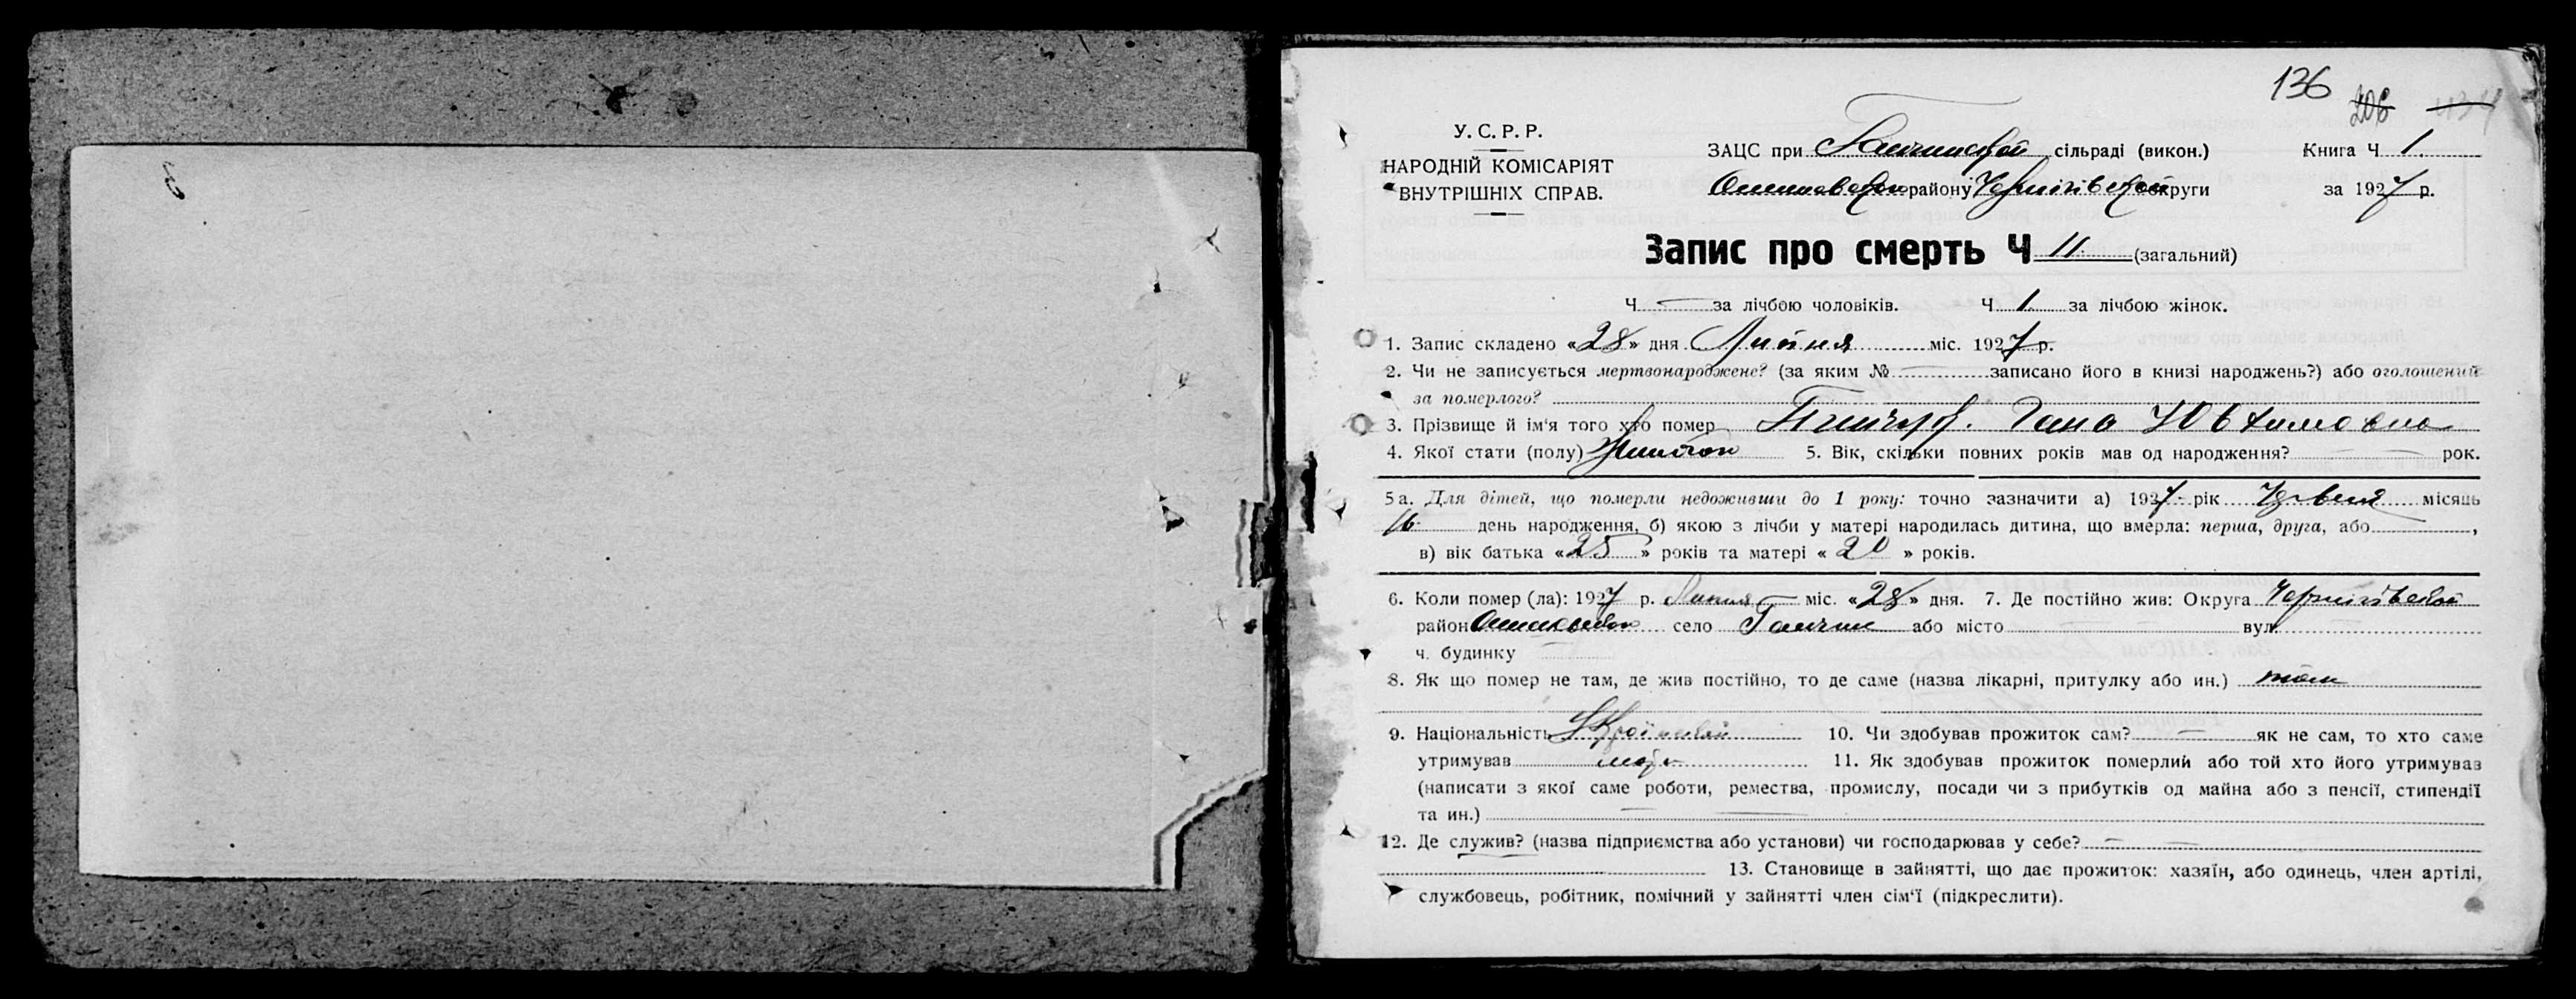 136 206
У. С. Р. Р.
НАРОДНІЙ КОМІСАРІЯТ
ВНУТРІШНІХ СПРАВ.
ЗАЦС при сільраді (викон.) Книга Ч 1.
району Чернігівской округи за 1927 р.
Запис про смерть Ч 11. (загальний)
Ч — за лічбою чоловіків. Ч 1 за лічбою жінок.
1. Запис складено «28» дня Липня міс. 1927 р.
2. Чи не записується мертвонароджене? (за яким № — записано його в книзі народжень?) або оголошений
за померлого?
3. Прізвище й ім'я того хто померГана Ювхимовна
4. Якої стати (полу) 5. Вік, скільки повних років мав од народження? — рок.
5а. Для дітей, що померли недоживши до 1 року: точно зазначити а) 1927 рік Червня місяць
16 день народження, б) якою з лічби у матері народилась дитина, що вмерла: перша, друга, або ,
в) вік батька «25» років та матері «20» років.
6. Коли помер (ла): 1927 р. Липня міс. «28» дня. 7. Де постійно жив: Округа Чернігівской
район село або місто — вул. —
ч. будинку
8. Як що помер не там, де жив постійно, то де саме (назва лікарні, притулку або ин.)
9. Національність 10. Чи здобував прожиток сам? — як не сам, то хто саме
утримував 11. Як здобував прожиток померлий або той хто його утримував
(написати з якої саме роботи, ремества, промислу, посади чи з прибутків од майна або з пенсії, стипендії
та ин.) —
12. Де служив? (назва підприємства або установи) чи господарював у себе? —
13. Становище в зайнятті, що дає прожиток: хазяїн, або одинець, член артілі,
службовець, робітник, помічний у зайнятті член сім'ї (підкреслити).